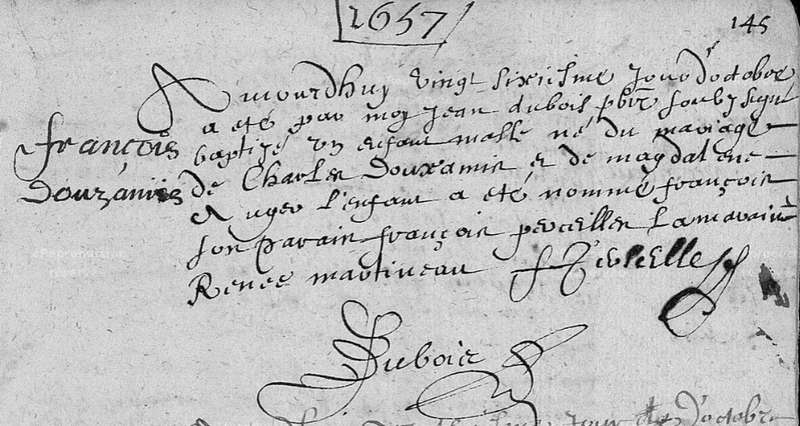 1657
145
Aujourdhuy vingt sixiesme jour d'octobre
a eté par moy Jean dubois pbre soubzsigné
baptizé un enfant masle né du mariage
François
Douzamis
de Charles Douxamis et de magdalene
Auger l'enfant a eté nommé françois
son parain françois percelles La maraine
Renee martineau
Dubois
jour d'octobre